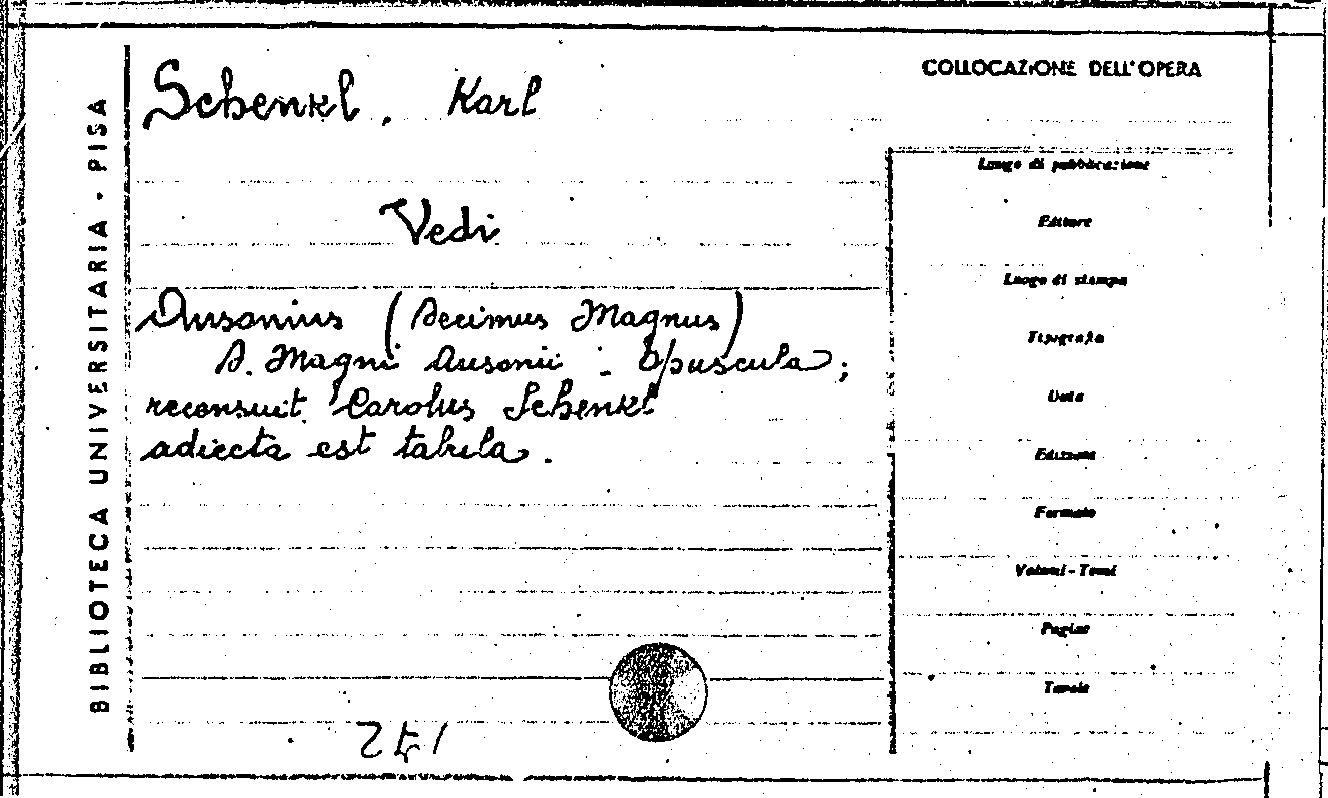 BIBLIOTECA UNIVERSITARIA - PISA
Schenkl, Karl
Vedi
Ausonius (Decimus Magnus)
D. Magni Ausonii : Opuscula;
reconsuit Carolus Schenkl
adiecta est tabula.
COLLOCAZIONE DELL'OPERA
Luogo di pubblicazione
Editore
Luogo di stampa
Tipografia
Data
Edizione
Formato
Volumi - Tomi
Pagine
Tavole